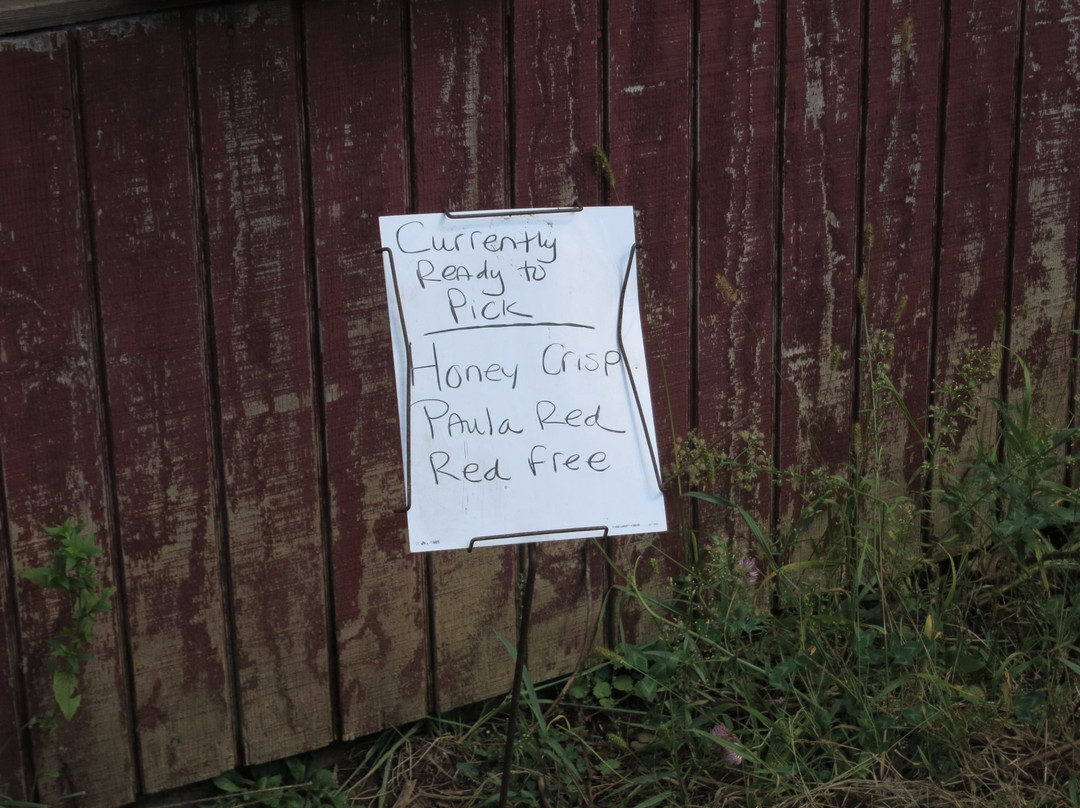 Currently
Ready to
Pick
Honey Crisp
Paula Red
Red Free